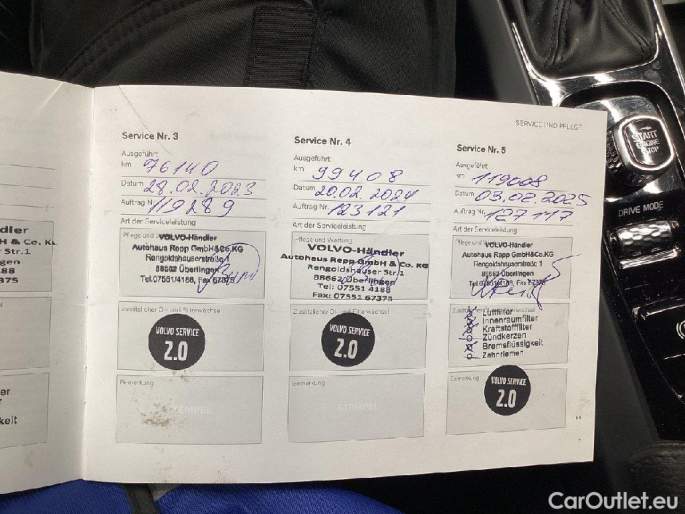 SERVICE UND PFLEGE
Service Nr. 3
Ausgeführt
km 76140
Datum 28.02.2023
Auftrag Nr. 119289
Art der Serviceleistung
VOLVO-Händler
Autohaus Rapp GmbH&Co.KG
Rengoldshauserstraße 1
88662 Überlingen
Tel.07551/4188, Fax 67375
Zusätzlicher Öl- und Filterwechsel
VOLVO SERVICE
2.0
Bemerkung
Service Nr. 4
Ausgeführt
km 99408
Datum 20.02.2024
Auftrag Nr. 123121
Art der Serviceleistung
Pflege und Wartung
VOLVO-Händler
Autohaus Rapp GmbH & Co. KG
Rengoldshauser Str. 1
88662 Überlingen
Tel: 07551 4188
Fax: 07551 67375
Zusätzlicher Öl- und Filterwechsel
VOLVO SERVICE
2.0
Bemerkung
Service Nr. 5
Ausgeführt
km 119008
Datum 03.02.2025
Auftrag Nr. 127117
Art der Serviceleistung
VOLVO-Händler
Autohaus Rapp GmbH&Co.KG
Rengoldshauserstraße 1
88662 Überlingen
Tel.07551/4188, Fax 67375
Luftfilter
Innenraumfilter
Kraftstofffilter
Zündkerzen
Bremsflüssigkeit
Zahnriemen
Bemerkung
VOLVO SERVICE
2.0
ändler
H & Co. KG
er Str.1
START
ENGINE
STOP
DRIVE MODE
CarOutlet.eu